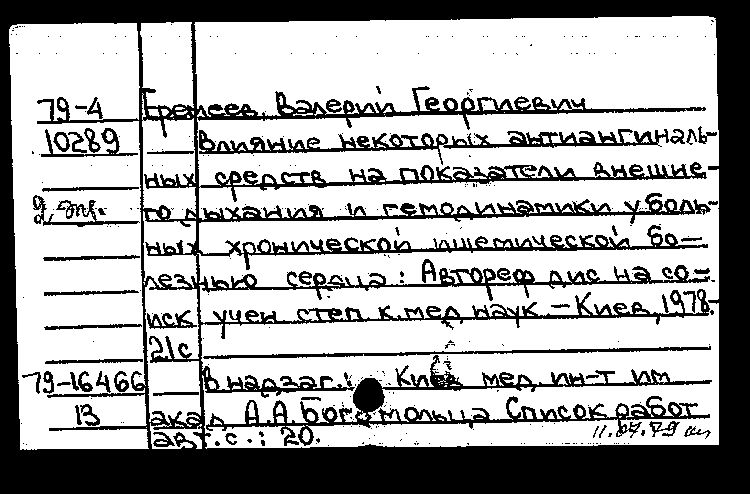 79-4 Еремеев, Валерий Георгиевич
10289 Влияние некоторых антиангиналь-
ных средств на показатели внешне-
го дыхания и гемодинамики у боль-
ных хронической ишемической бо-
лезнью сердца: Автореф дис на со-
иск учен степ к. мед наук. - Киев, 1978.
21с
79-16466 В надзаг.: Киев мед. ин-т им
13 акад А.А. Богомольца Список работ
авт. с.: 20. 11.07.79